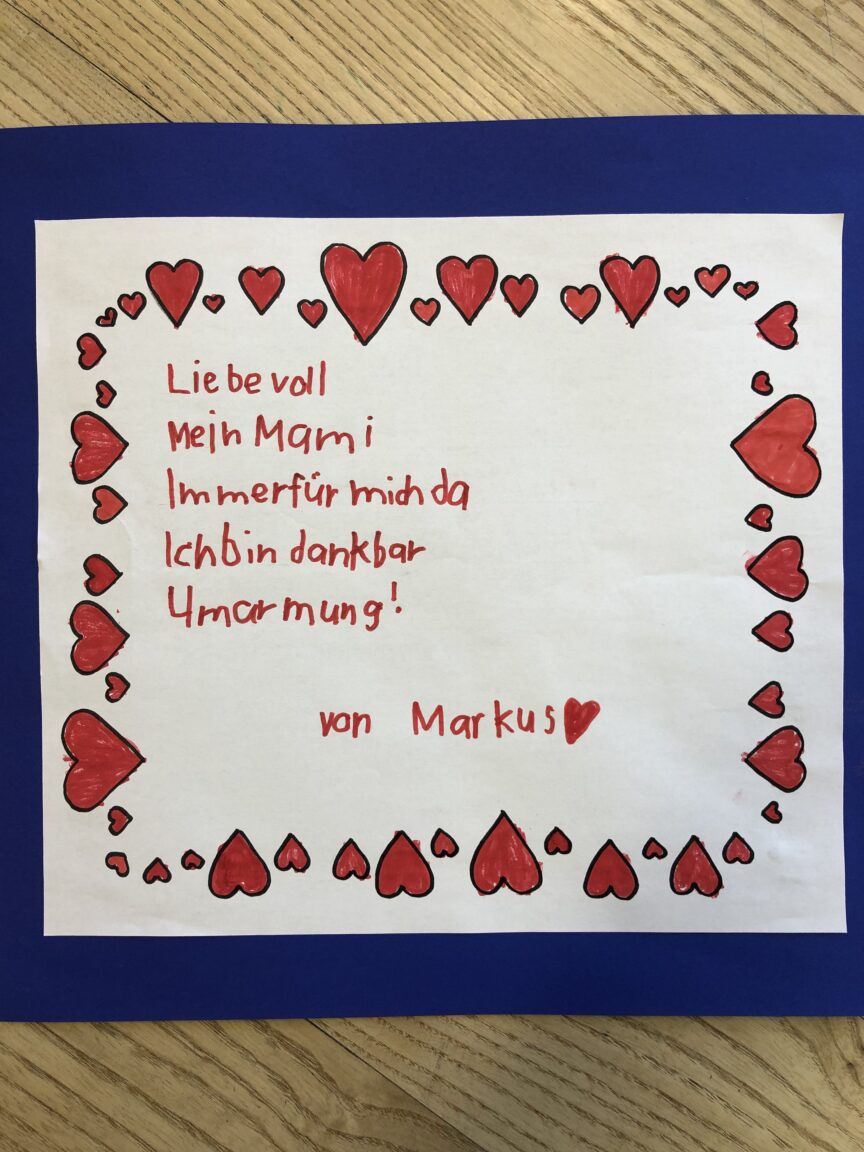 Liebevoll
Mein Mami
Immer für mich da
Ich bin dankbar
Umarmung!
von Markus